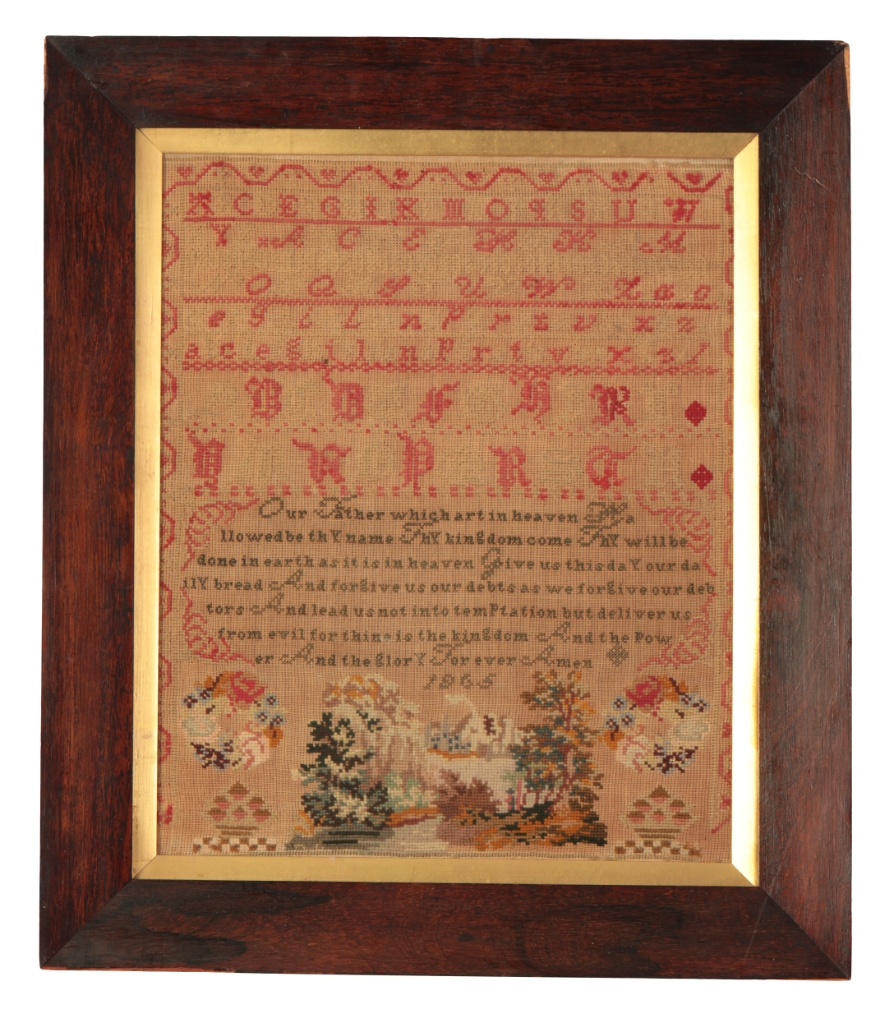 A C E G I K M O Q S U W
Y A C E H K M
O Q S U W Z a c
e g i l n p r t v x z
a c e g i l n p r t v x z /
B D F H K
N P R T
Our Father which art in heaven Ha
llowed be thY name ThY kingdom come ThY will be
done in earth as it is in heaven Give us this daY our da
ilY bread And forgive us our debts as we forgive our deb
tors And lead us not into temPtation but deliver us
from evil for thine is the kingdom And the Pow
er And the glorY For ever Amen
1865